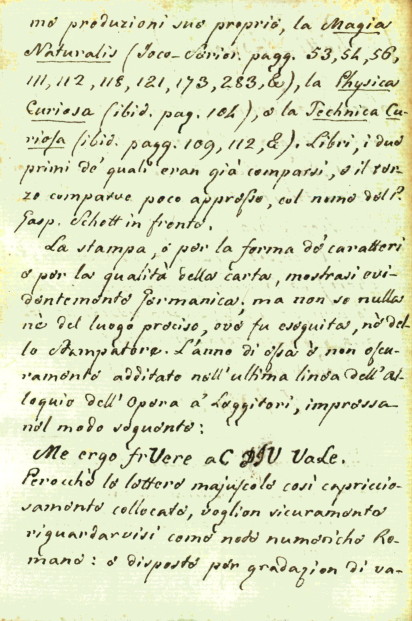 me produzioni sue proprie, la Magia
Naturalis (Joco-Serior. pagg. 53, 54, 56,
111, 112, 118, 121, 173, 283, &), la Physica
Curiosa (ibid. pag. 104), e la Technica Cu-
riosa (ibid. pagg. 109, 112, &). Libri, i due
primi de' quali eran già comparsi, e il ter-
zo comparve poco appresso, col nome del P.
Gasp. Schott in fronte.
La stampa, e per la forma de' caratteri
e per la qualità della carta, mostrasi evi-
dentemente Germanica; ma non se nulla
nè del luogo preciso, ove fu eseguita, nè del-
lo Stampatore. L'anno di essa è non oscu-
ramente additato nell'ultima linea dell'Al-
loquio dell'Opera a' Leggitori, impressa
nel modo seguente:
Me ergo frVere aC DIV VaLe.
Perocchè le lettere majuscole così capriccio-
samente collocate, voglion sicuramente
riguardarvisi come note numeriche Ro-
mane: e disposte per gradazion di va-